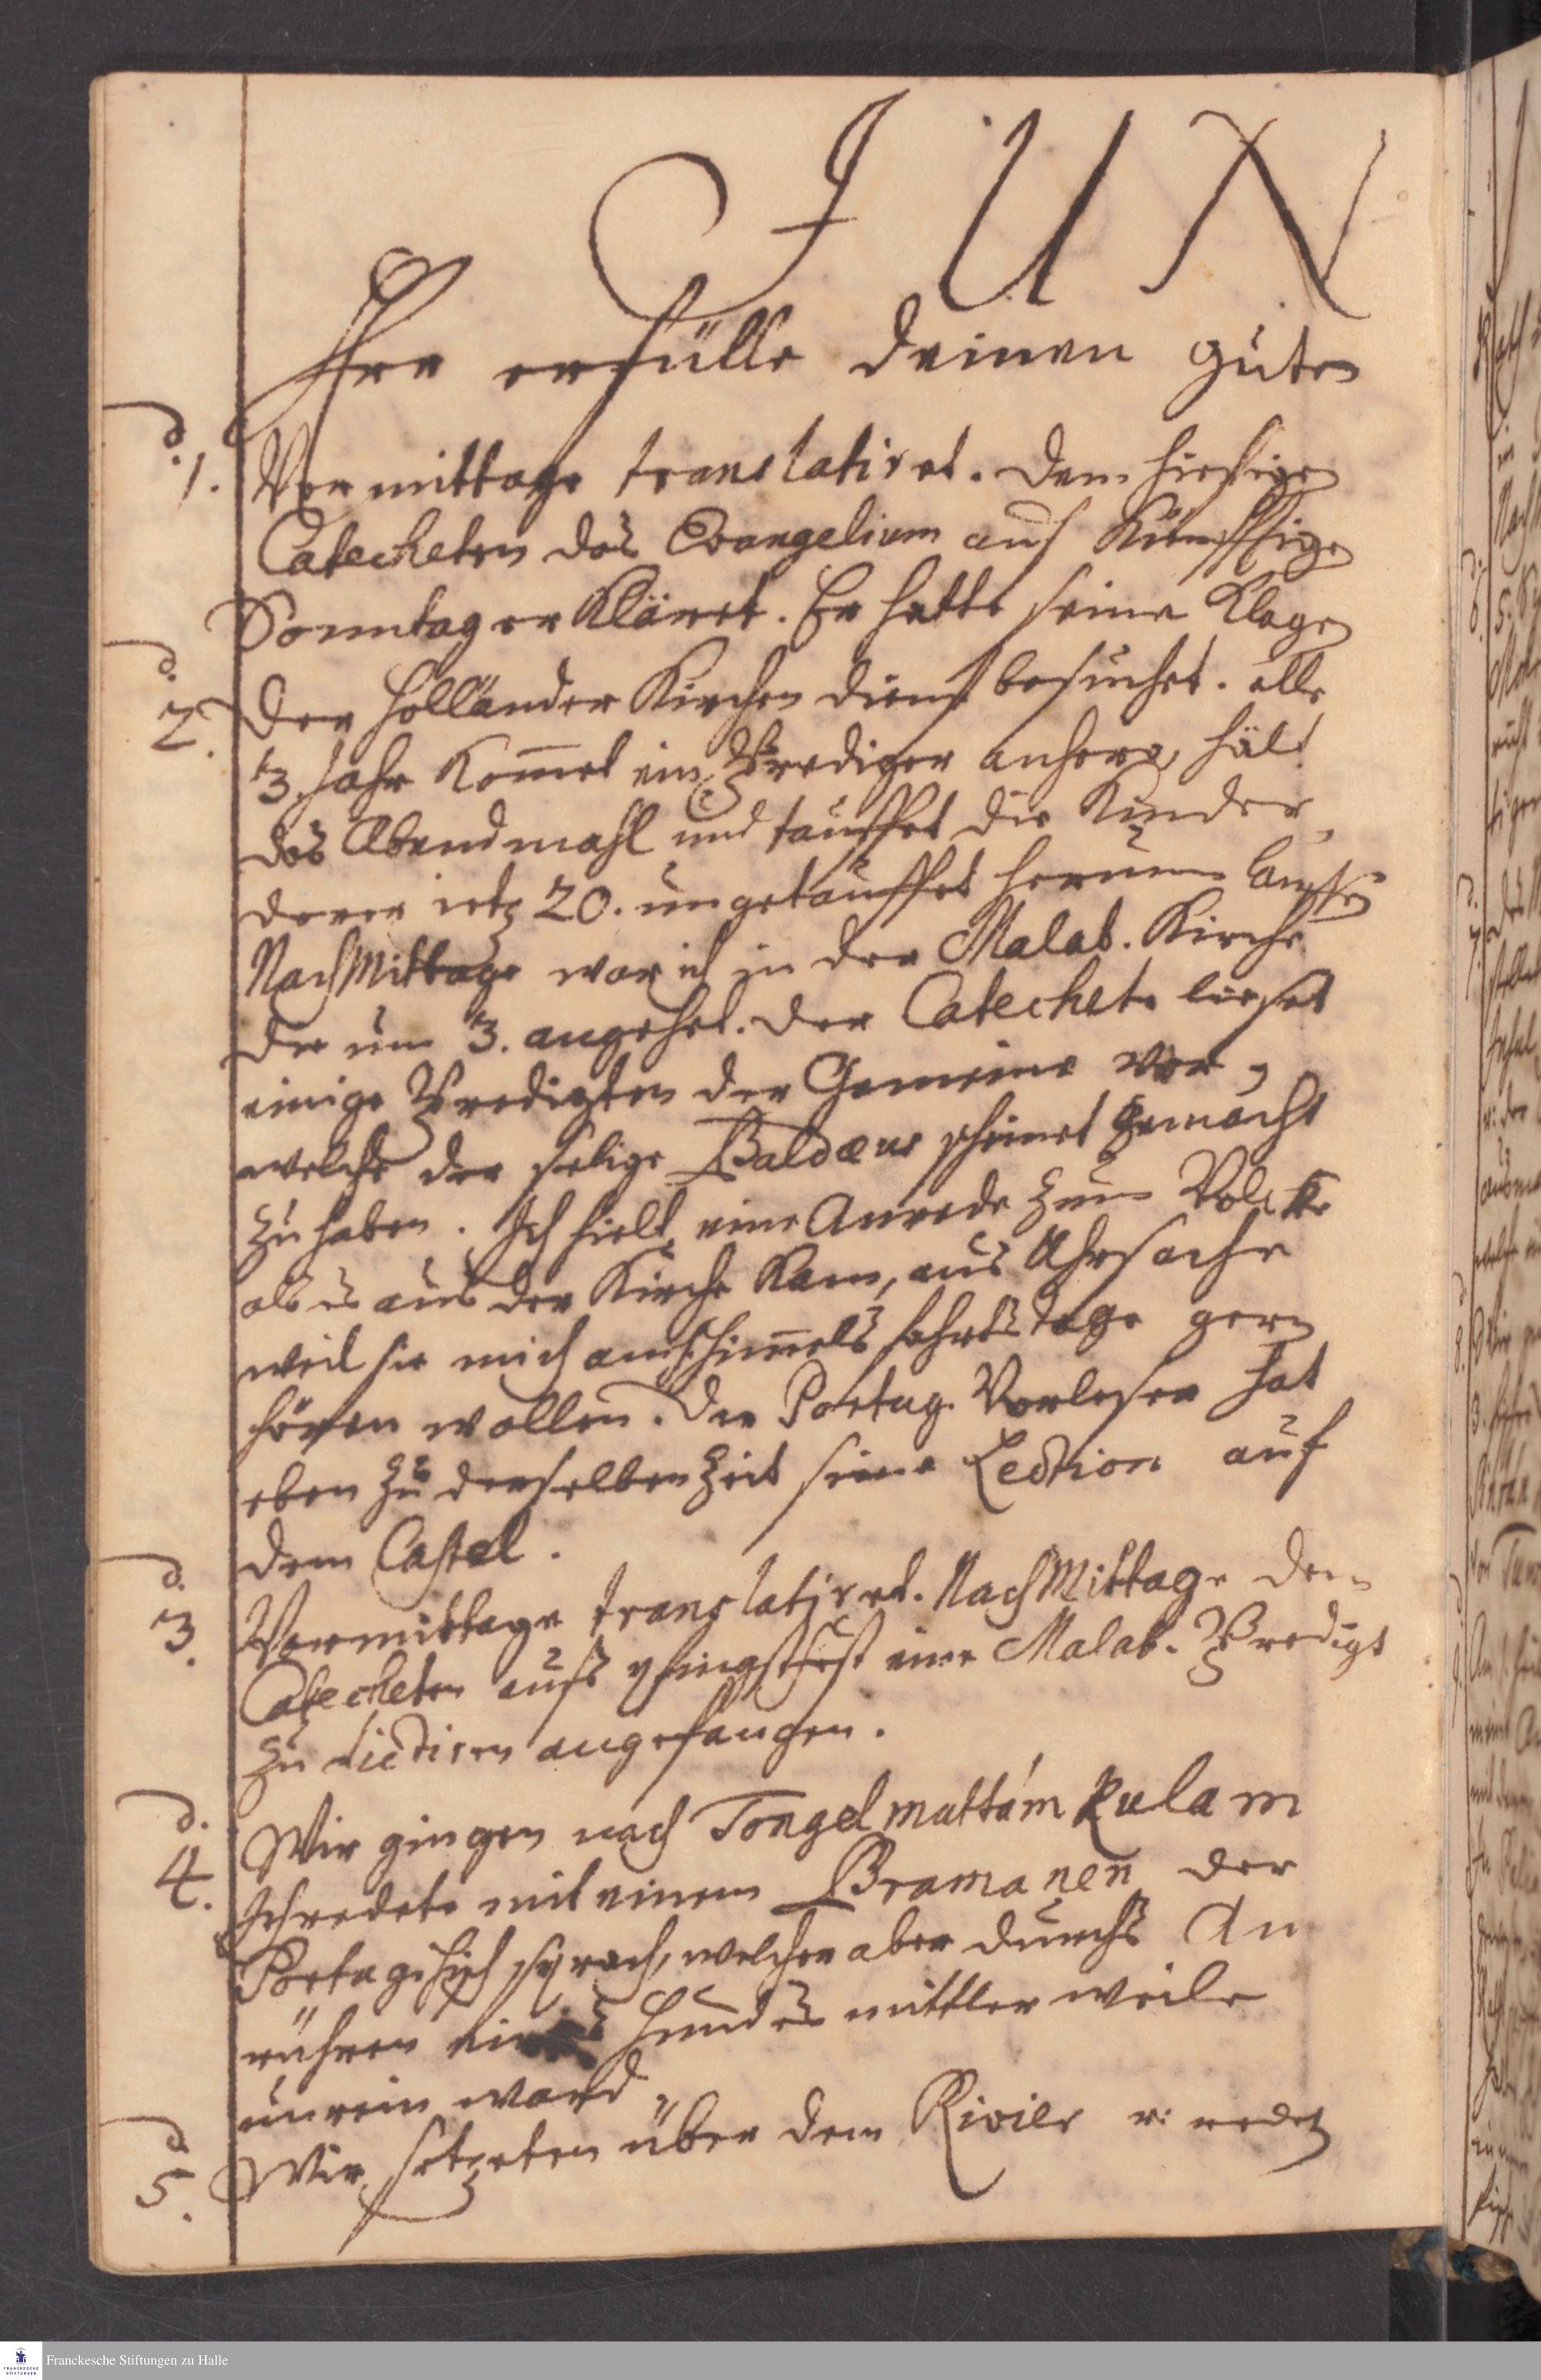 JUN
Herr erfülle deinen guten
d. 1. Vormittage translatiret. dem hiesigen
Catecheten das Evangelium auf Künfftige
Sonntag erkläret. Er hatte seine Klage
d. 2. Der Holländer Kirchen dienst besuchet. alle
3. Jahr kom̅et ein Prediger anhero, hält
das Abendmahl und täuffet die Kinder,
derer ietz 20. ungetäuffet herum lauffen
NachMittage war ich in der Malab. Kirche
die um 3. angehet. der Catechete lieset
einige Predigten der Gemeine vor,
welche der selige Baldæus scheinet gemacht
zu haben. Ich hielt eine Anrede zum Volcke
als es aus der Kirche kam, aus Uhrsache
weil sie mich am Him̅els fahrts tage gern
hören wollen. Der Portug. Vorleser hat
eben zu derselben Zeit seine Lection auf
dem Castel.
d. 3. Vormittage translatiret. NachMittage dem
Catecheten aufs pfingstfest eine Malab. Predigt
zu dictiren angefangen.
d. 4. Wir gingen nach Tongelmuttámkulam
Ich redete mit einem Bramanen der
Portugisisch sprach, welcher aber durchs An
rühren eines Hundes mittler weile
unrein ward.
d. 5. Wir setzeten über dem Rivier u: redetẽ
Franckesche Stiftungen zu Halle